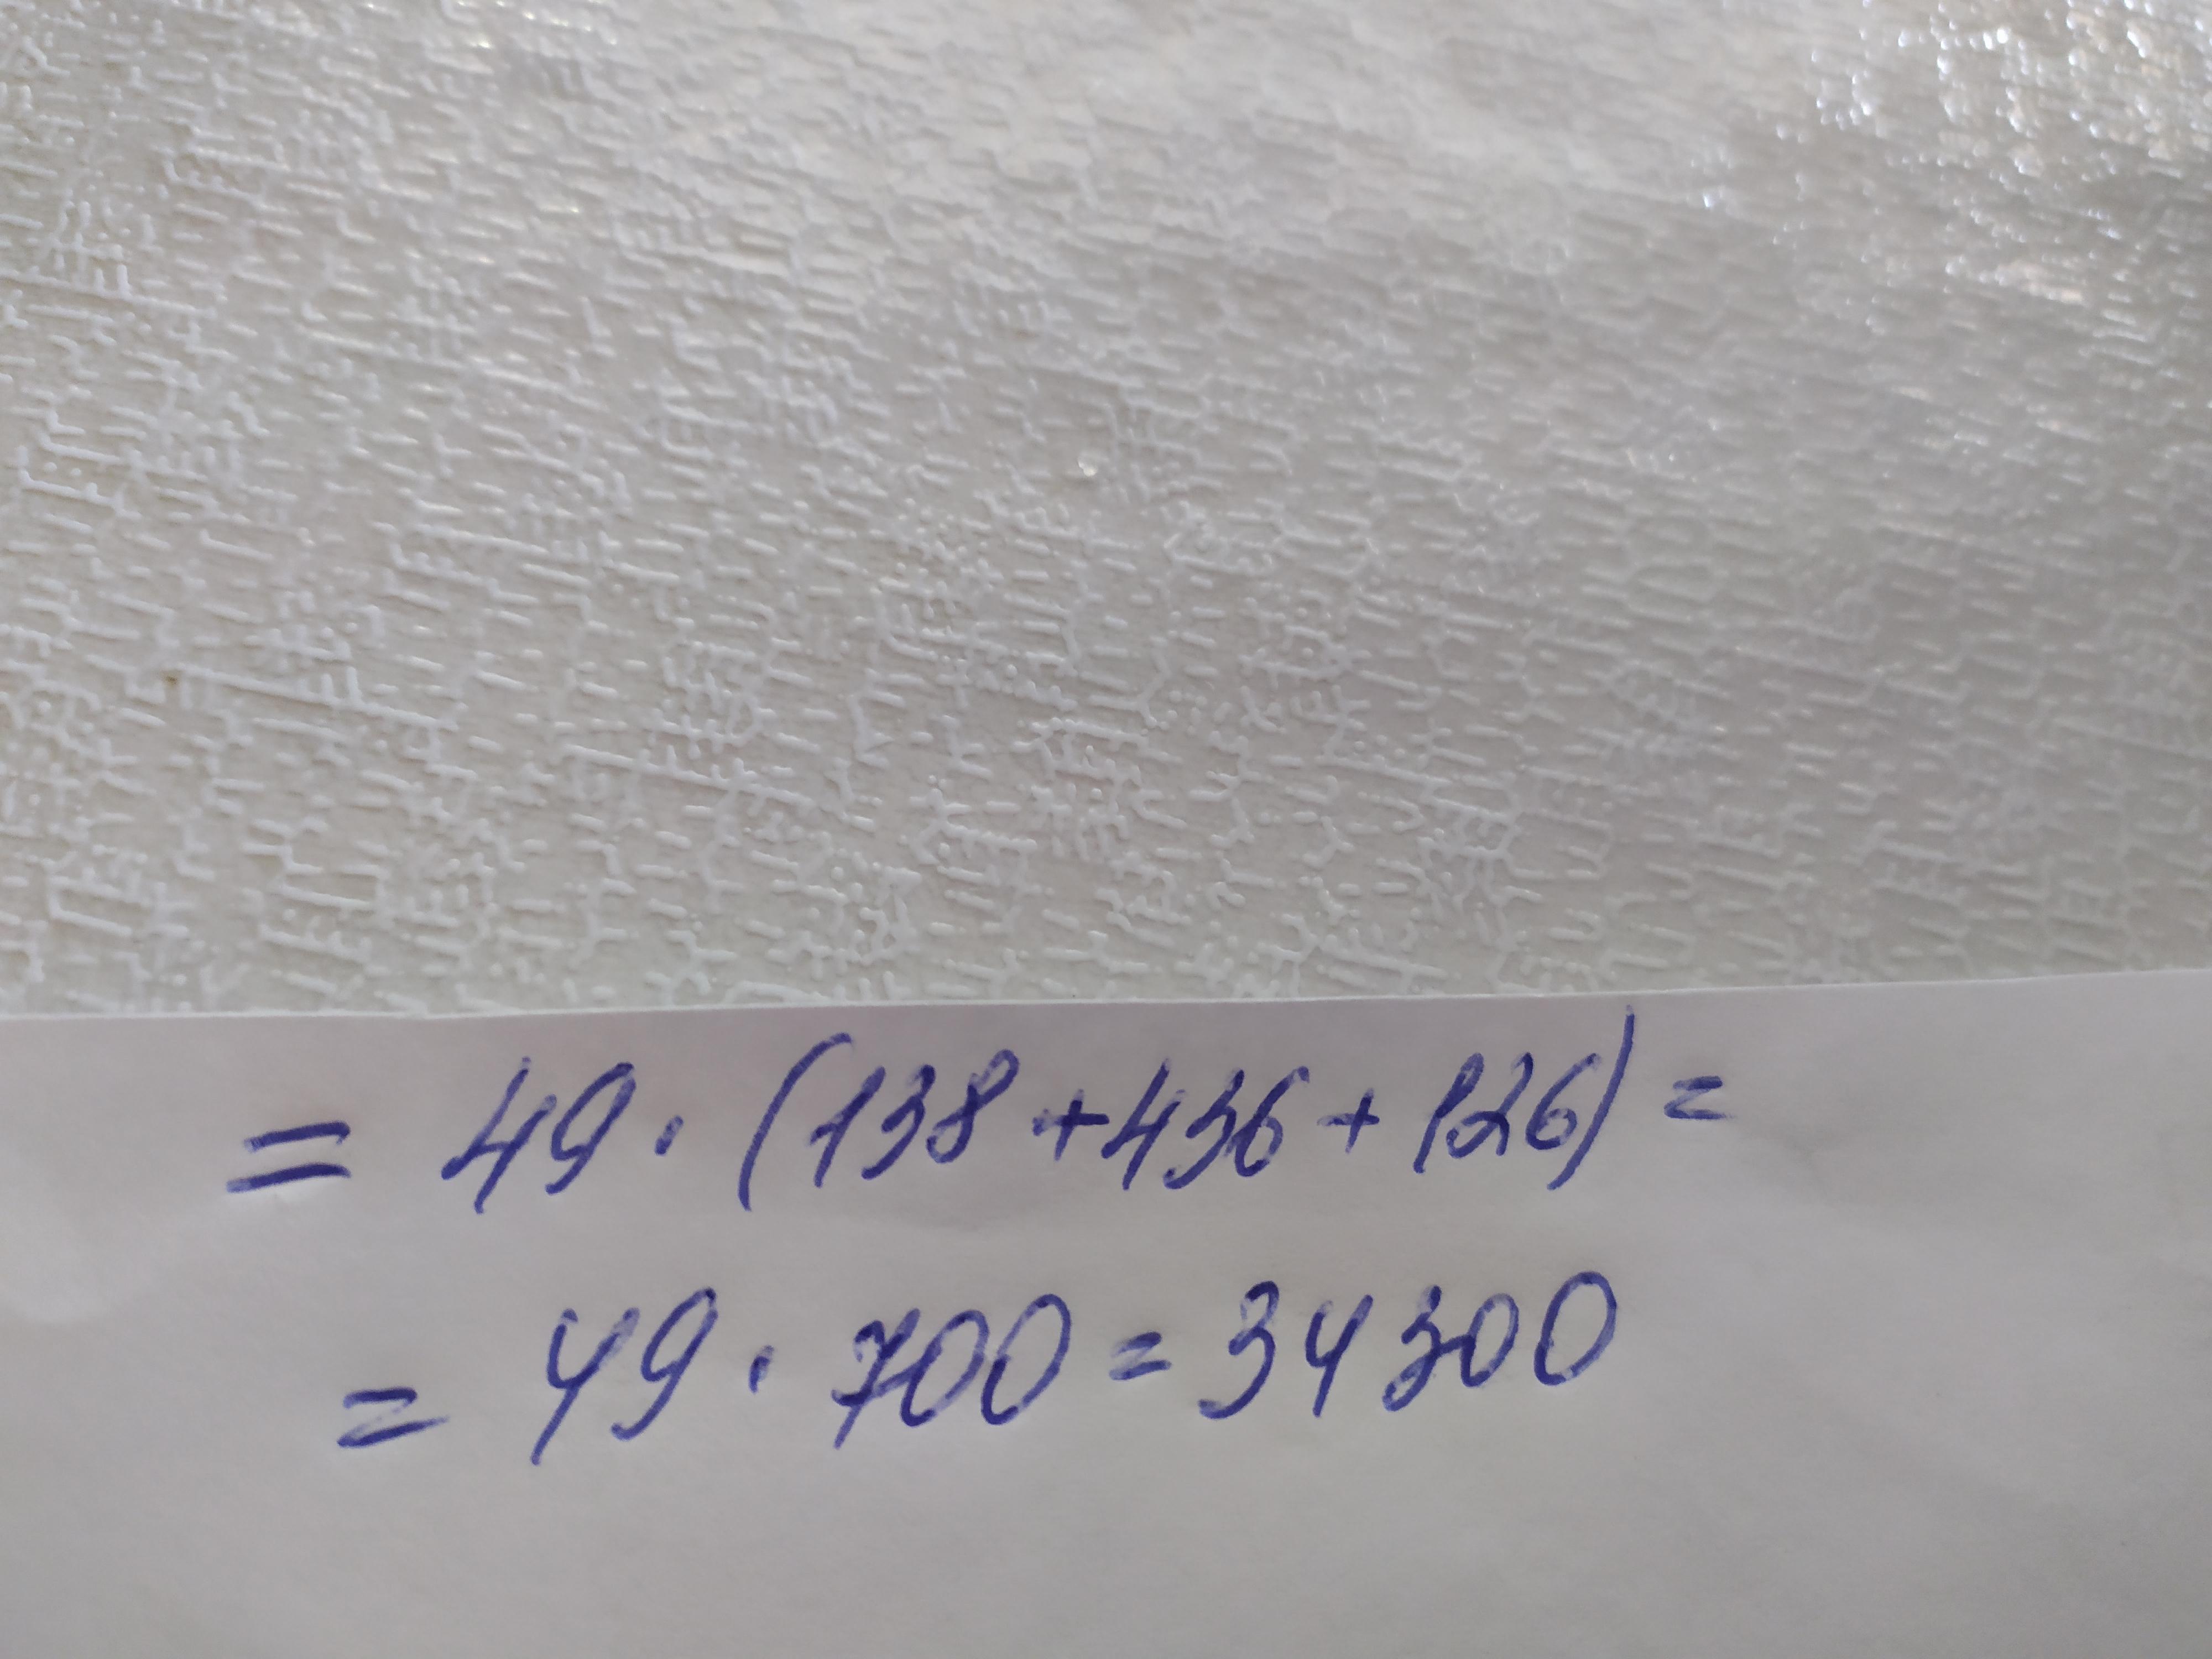 = 49 · (138 + 436 + 126) =
= 49 · 700 = 34300